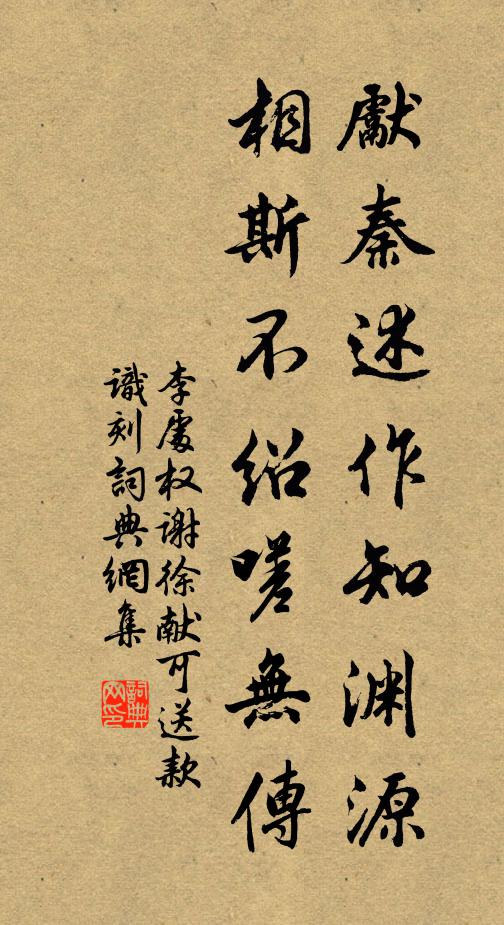 獻秦述作知渊源
相斯不紹嗟無傳
李處权谢徐献可送款
識刻詞典網集
詞典
网印